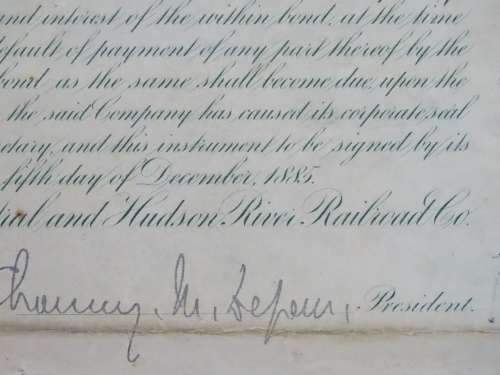 and interest of the within bond, at the time
default of payment of any part thereof by the
bond as the same shall become due, upon the
the said Company has caused its corporate seal
and this instrument to be signed by its
fifth day of December, 1885.
and Hudson River Railroad Co.
Chauncey. M. Depew, President.